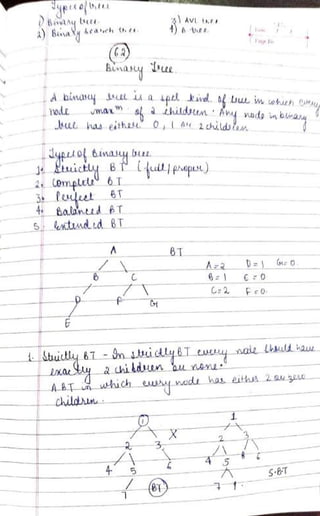 Types of trees
1) Binary tree. 3) AVL tree
2) Binary search tree. 4) B-tree
6.2
Binary Tree
A binary tree is a spel kind of tree in which every
node max^m of 2 children. Any node in binary
tree has either 0, 1 or 2 children
Types of Binary tree
1. Strictly BT (full/proper)
2. Complete BT
3. Perfect BT
4. Balanced BT
5. Extended BT
A BT
B C
D F G
E
A=2 D=1 G=0
B=1 E=0
C=2 F=0
1. Strictly BT - In strictly BT every node should have
exactly 2 children or none.
A BT in which every node has either 2 or zero
children.
1 X
2 3
4 5 6
7 BT
1
2 3
4 5 6
7 S.BT